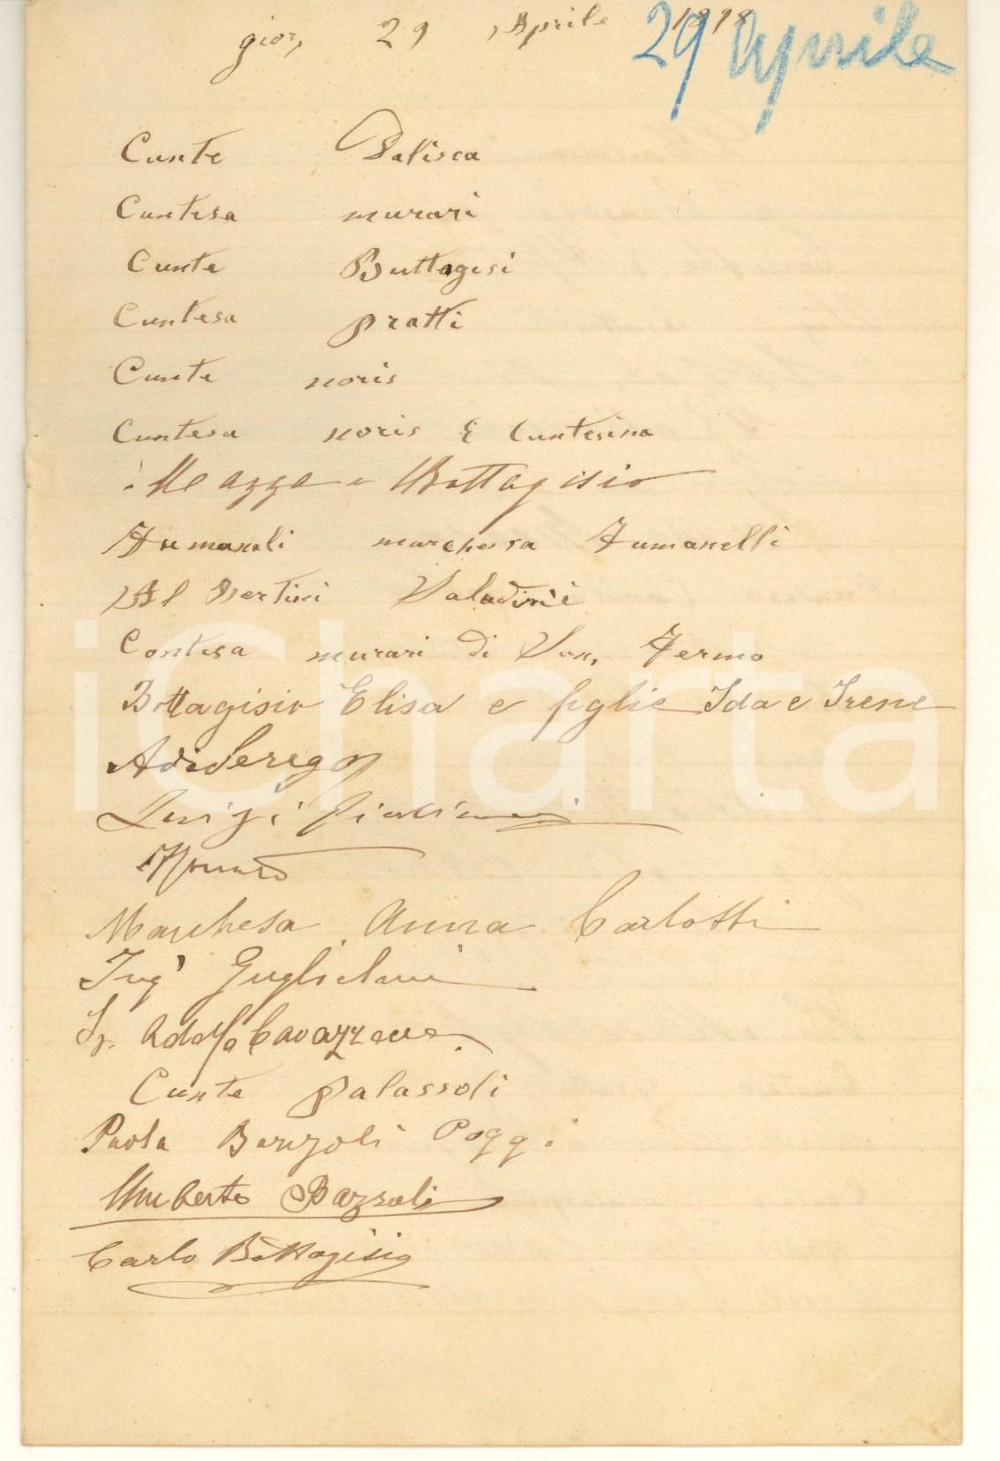 gior, 29 Aprile 1898
29 Aprile
Cunte Salisca
Cuntesa murari
Cunte Buttagisi
Cuntesa pratti
Cunte noris
Cuntesa noris E Cuntesina
Mazza e Bottagisio
Fumaneli marchesa Fumanelli
Al Bertini Saladini
Contesa murari di San, Fermo
Bottagisio Elisa e figlie Ida e Irene
A di Serego
Luigi
Marchesa Anna Carlotti
Ing Guglielmi
Adolfo Cavazzana
Cunte palassoli
Paola Barizoli Poggi
Umberto Bazzoli
Carlo Bottagisio
iCharta